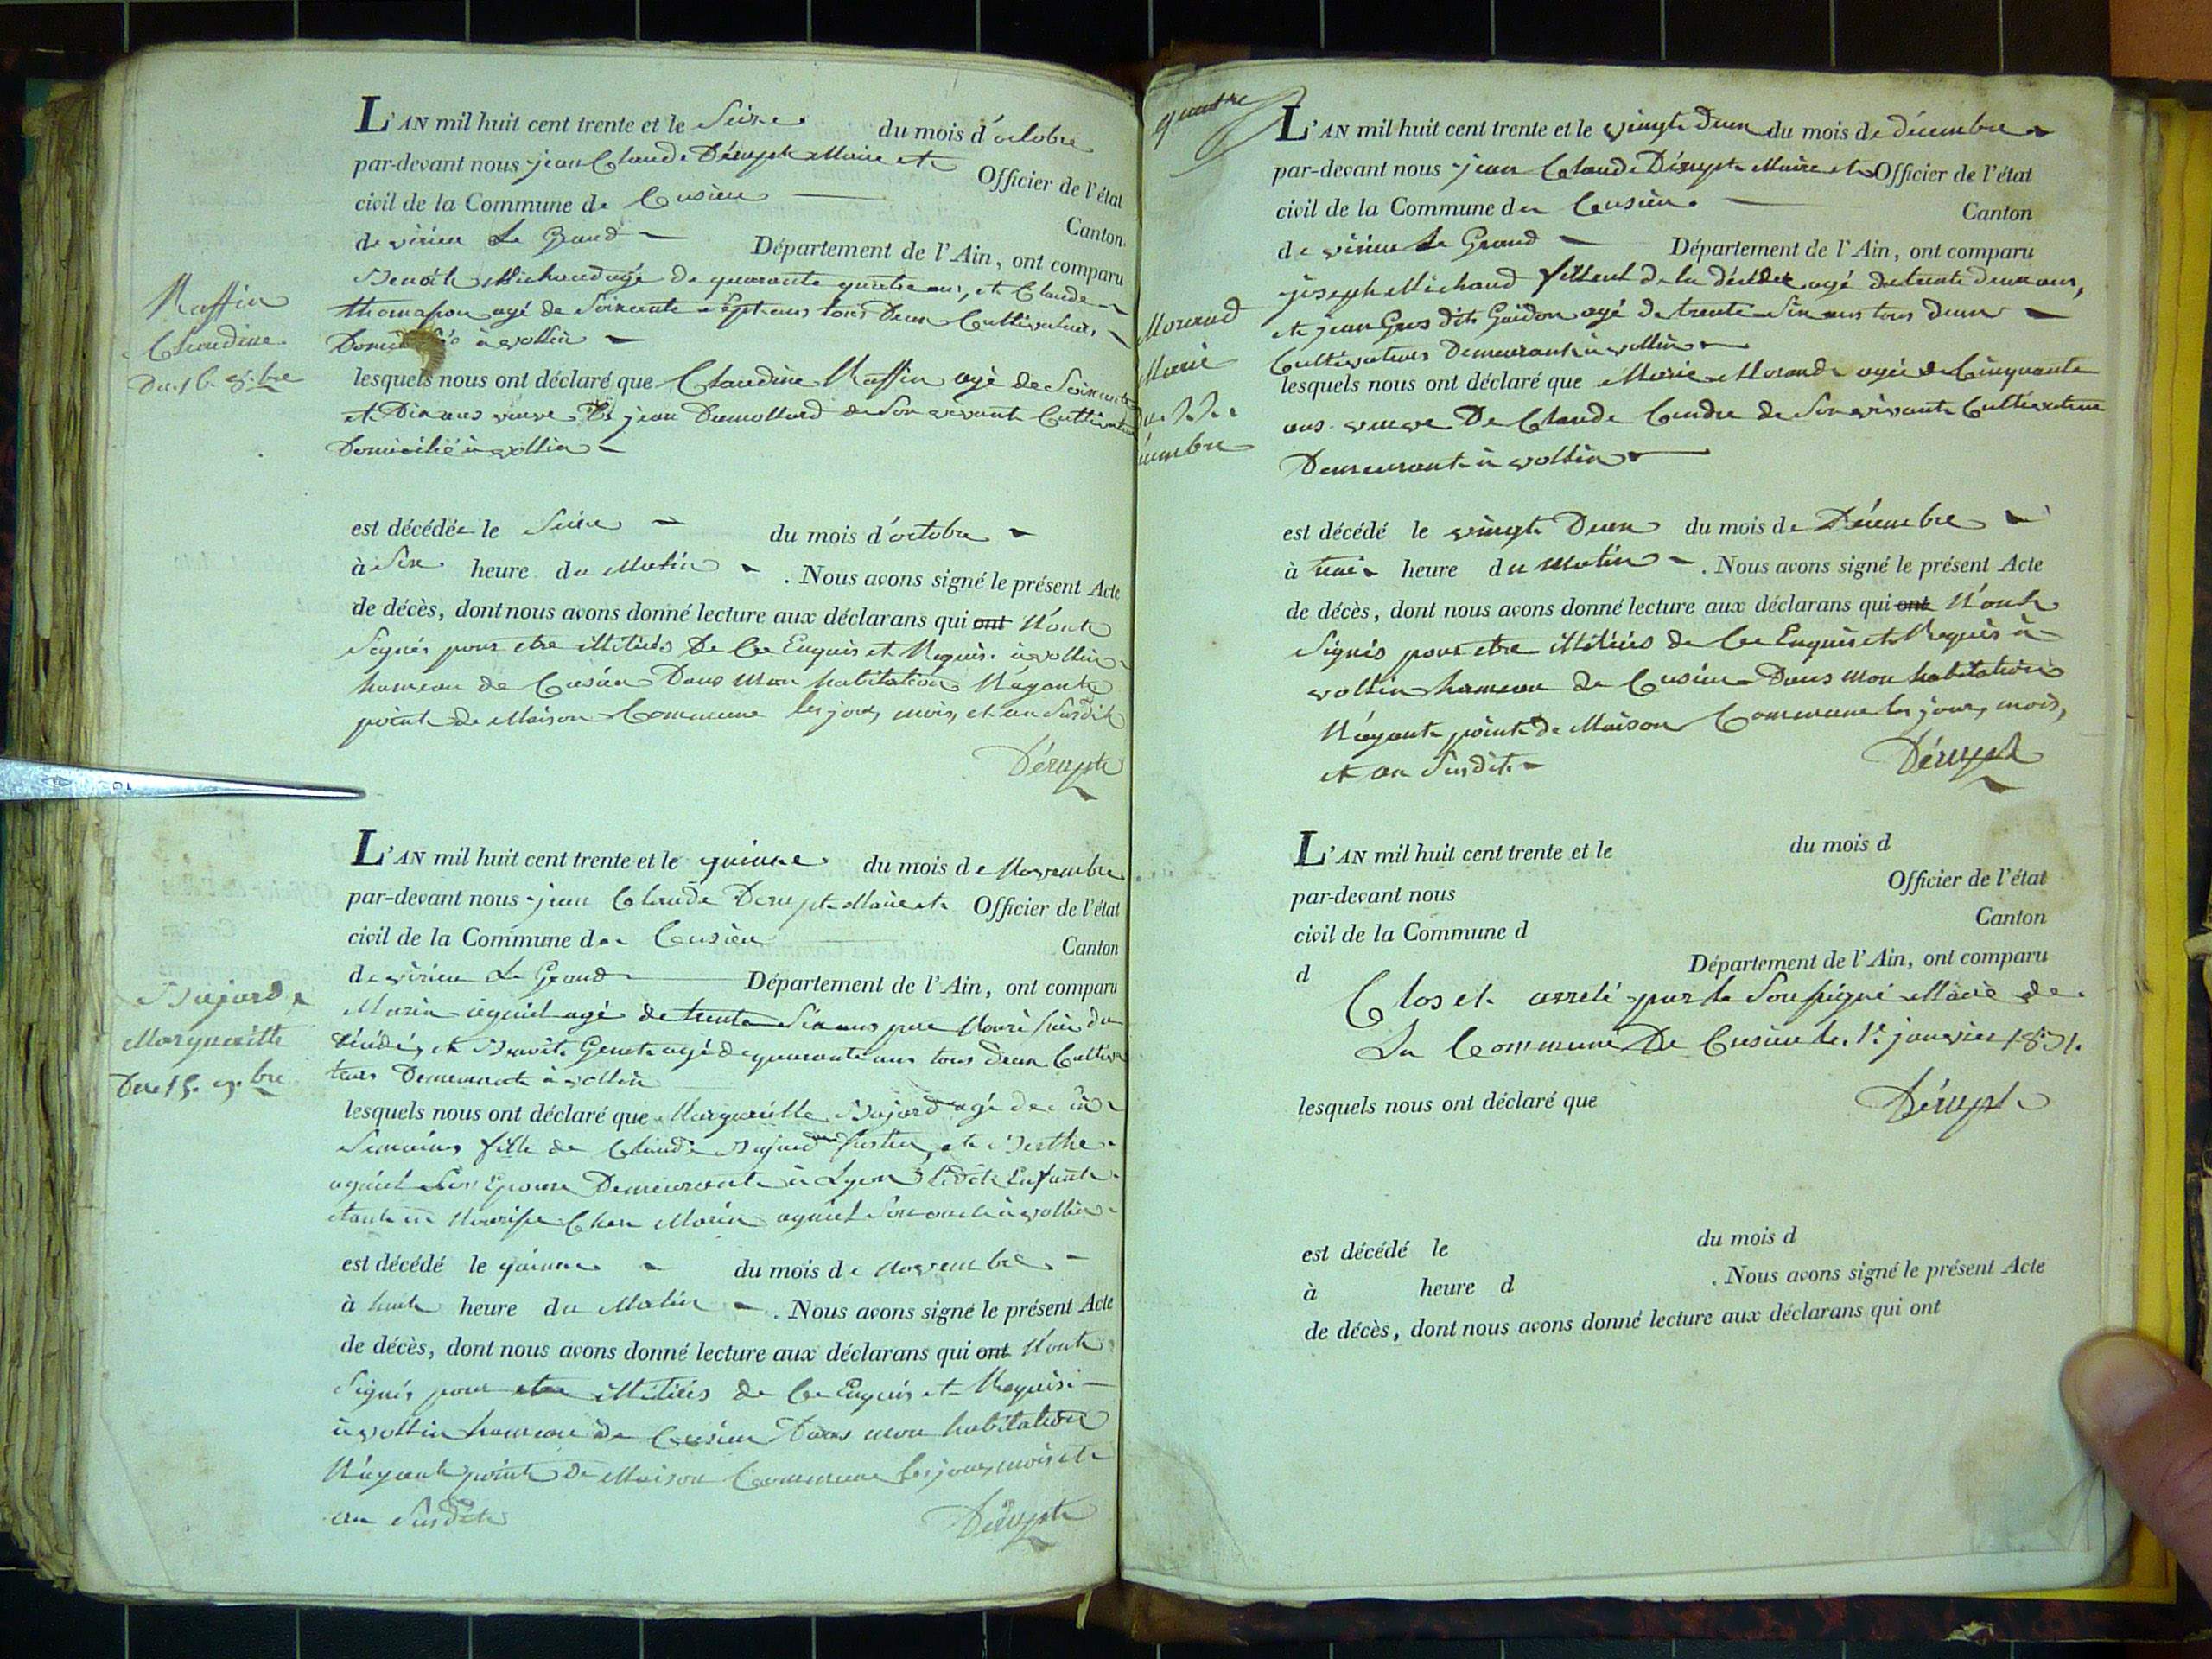 L'AN mil huit cent trente et le Seize du mois d'octobre
par-devant nous jean Claude Dérupt Maire et Officier de l'état
civil de la Commune de Cusieu Canton
de virieu Le Grand Département de l'Ain, ont comparu
Benoit Michaud agé de quarante quatre ans, et Claude
thomasson agé de Soixante Sept ans tous Deux Cultivateurs
à vollin
Raffin
Claudine
Du 16 8.bre
lesquels nous ont déclaré que Claudine Raffin agé de Soixante
et Dix ans veuve De jean Dumollard de Son vivant Cultivateur
Domicilié à vollin
est décédée le Seize du mois d'octobre
à Six heure du Matin . Nous avons signé le présent Acte
de décès, dont nous avons donné lecture aux déclarans qui ont N'ont
Signés pour etre illitérés De Ce Enquis et Requis à vollin
hameau de Cusieu Dans mon habitation N'ayant
point de Maison Commune les jour, mois, et an Susdit
Dérupt
L'AN mil huit cent trente et le quinze du mois de Novembre
par-devant nous jean Claude Dérupt Maire et Officier de l'état
civil de la Commune de Cusieu Canton
de virieu Le Grand Département de l'Ain, ont comparu
Marin aguiel agé de trente Six ans père Nouricier du
décédé, et Benoit Genet agé de quarante ans tous deux Cultiva
teurs Demeurant à vollin
Bajard
Margueritte
Du 15 9.bre
lesquels nous ont déclaré que Margueritte Bajard agé de
Semaines fille de Claude Bajard et Berthe
aguiel Son Epouse Demeurant à Lyon Ledit Enfant
etant en Nourise Chez Marin aguiel Son oncle à vollin
est décédé le quinze du mois de Novembre
à huit heure du Matin . Nous avons signé le présent Acte
de décès, dont nous avons donné lecture aux déclarans qui ont N'ont
Signés pour etre illitérés de Ce Enquis et Requis
à vollin hameau de Cusieu Dans mon habitation
N'ayant point De Maison Commune les jour, mois et
an Susdit
Dérupt
quatre
L'AN mil huit cent trente et le vingt Deux du mois de décembre
par-devant nous jean Claude Dérupt Maire et Officier de l'état
civil de la Commune de Cusieu Canton
de virieu Le Grand Département de l'Ain, ont comparu
joseph Michaud filleul de la décédée agé de trente deux ans,
et jean Gros dit Guidon agé de trente Six ans tous Deux
Cultivateurs Demeurant à vollin
Morand
Marie
lesquels nous ont déclaré que Marie Morand agée de Cinquante
ans veuve De Claude de Son vivant Cultivateur
Demeurant à vollin
est décédé le vingt Deux du mois de Décembre
à heure du Matin . Nous avons signé le présent Acte
de décès, dont nous avons donné lecture aux déclarans qui ont N'ont
Signés pour etre illitérés de Ce Enquis et Requis à
vollin hameau de Cusieu Dans mon habitation
N'ayant point de Maison Commune les jour, mois,
et an Susdit
Dérupt
L'AN mil huit cent trente et le du mois d
par-devant nous Officier de l'état
civil de la Commune d Canton
d Département de l'Ain, ont comparu
Clos et arreté par le Soussigné Maire de
La Commune De Cusieu le 1.r janvier 1831.
Dérupt
lesquels nous ont déclaré que
est décédé le du mois d
à heure d . Nous avons signé le présent Acte
de décès, dont nous avons donné lecture aux déclarans qui ont